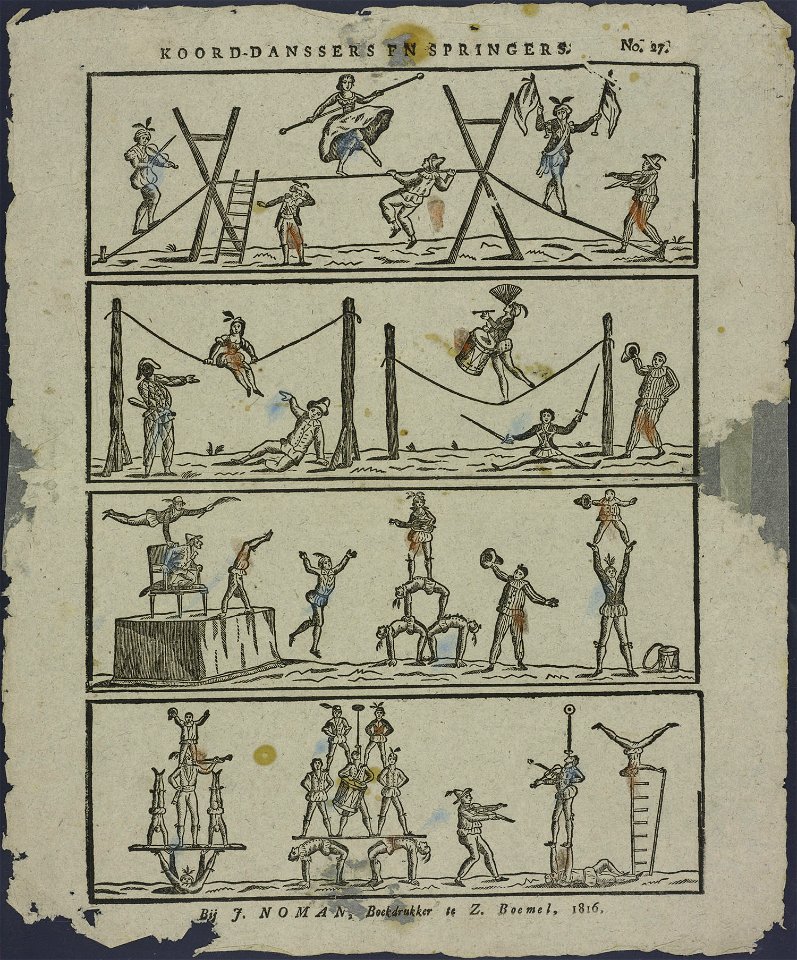 KOORD-DANSSERS EN SPRINGERS. No. 27.
Bij J. NOMAN, Boekdrukker te Z. Boemel, 1816.